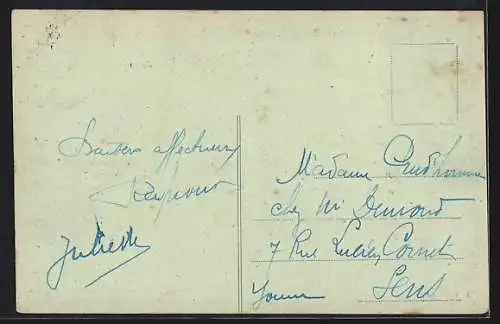 Baisers affectueux
Raymond
Juliette
Madame Prud'homme
chez Mr
7 Rue Cornet
Sens
Yonne